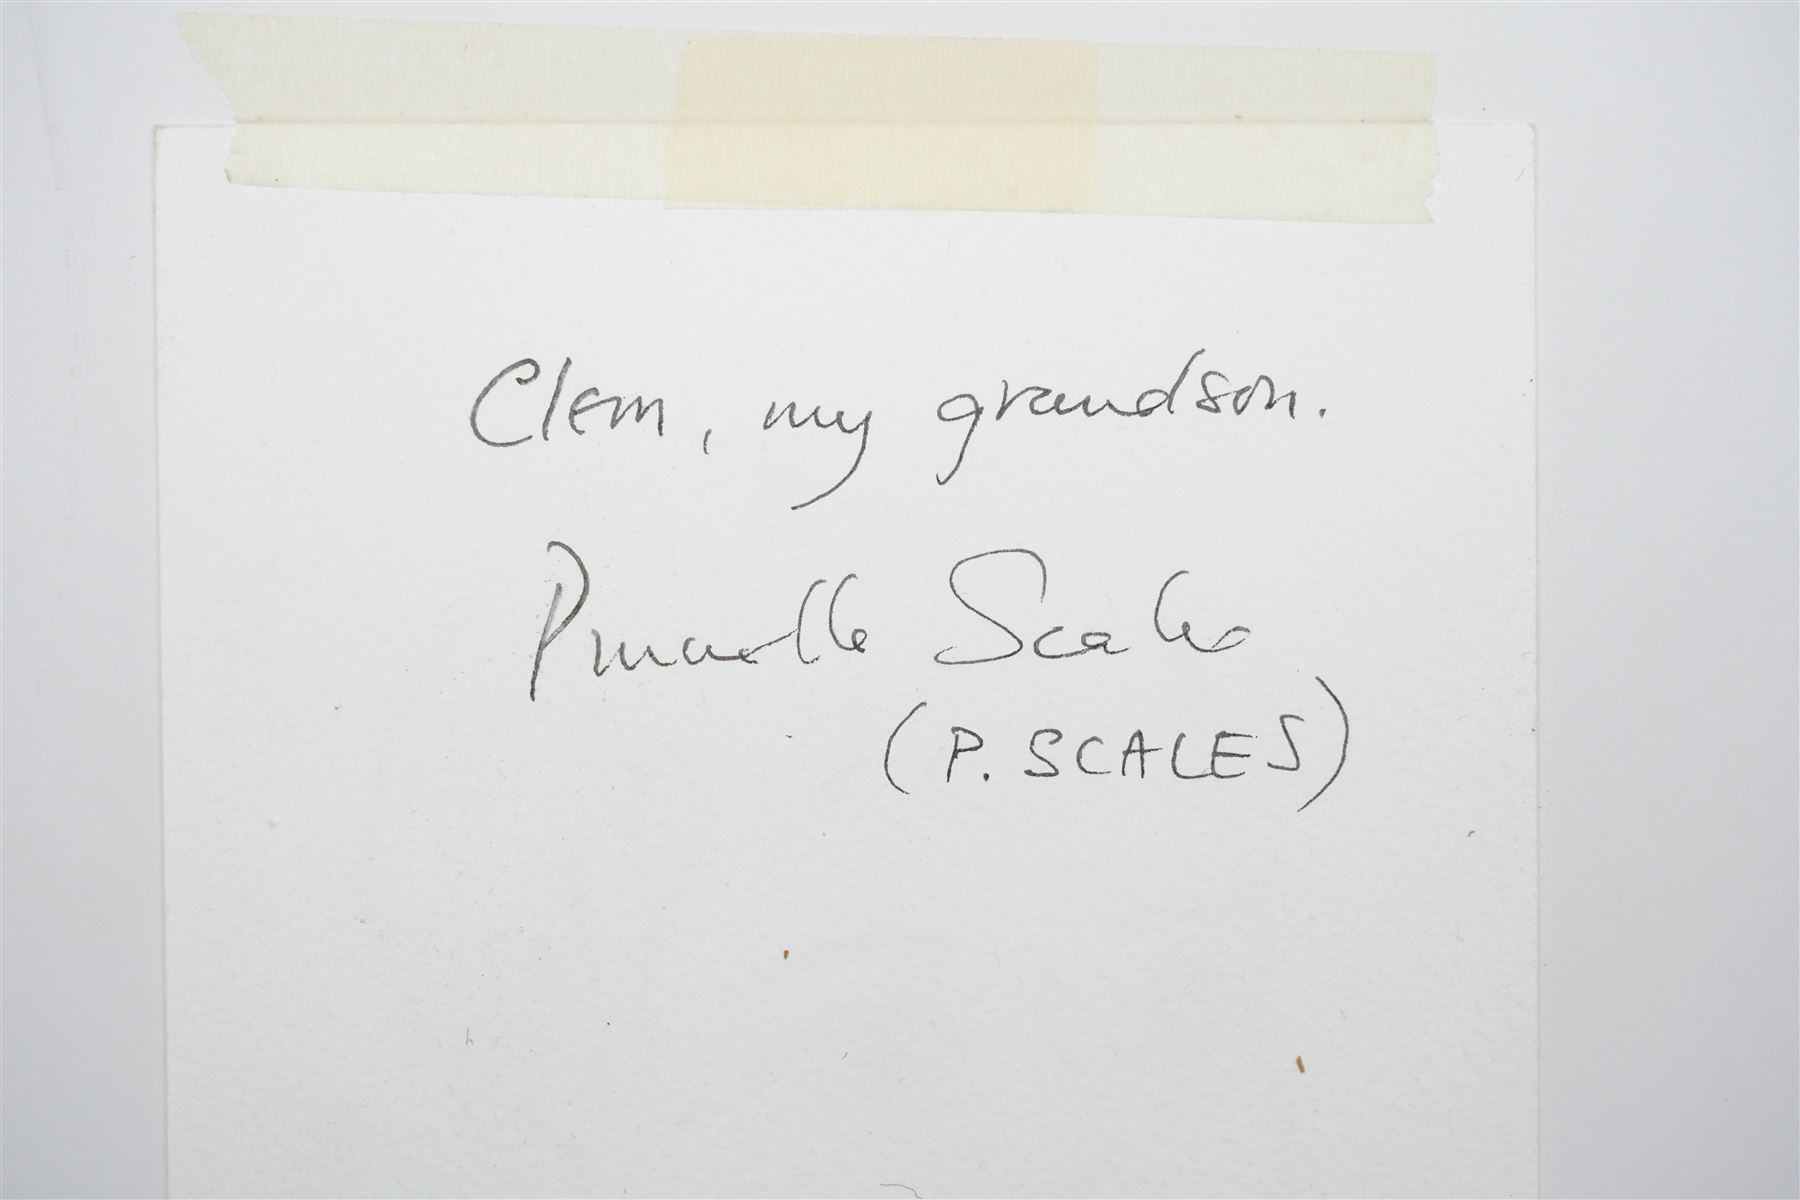 Clem, my grandson.
Prunella Scales
(P. SCALES)